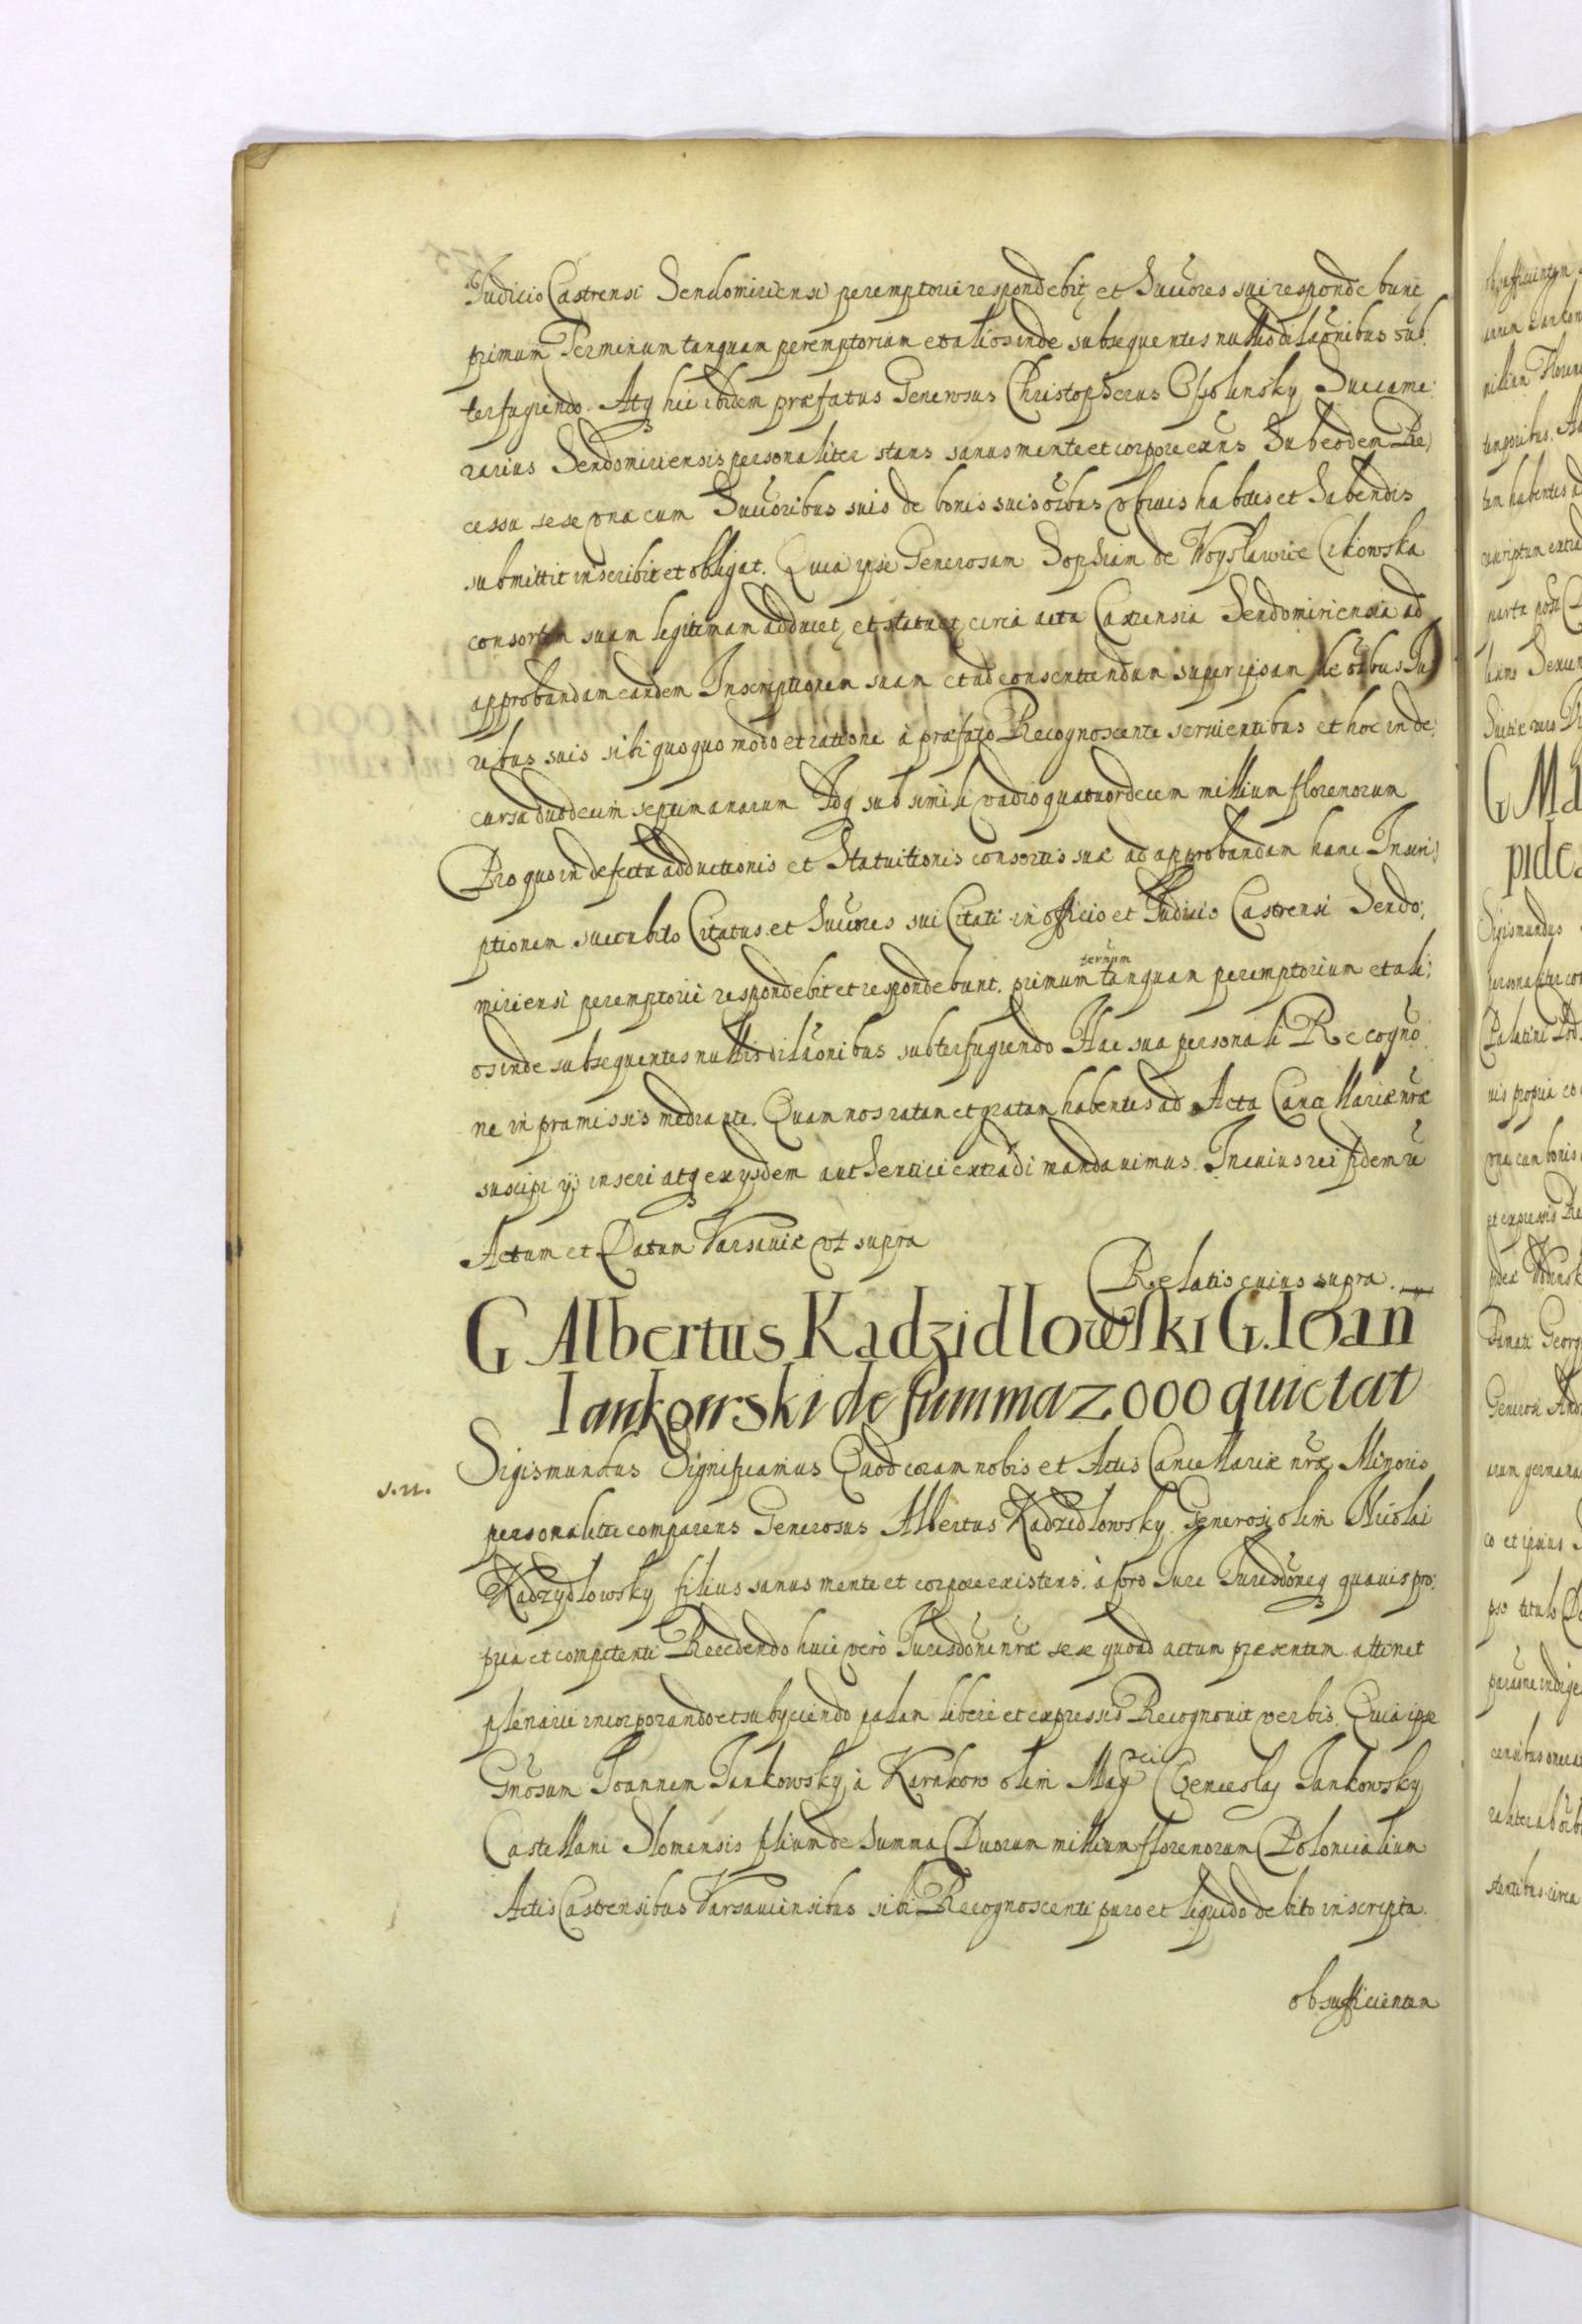 Judicio Castrensi Sendomiriensi peremptorie respondebit et Succores sui respondebunt
primum Terminum tanquam peremptorium et alios inde subsequentes nullis dilacionibus sub:
terfugiendo. Atq hic ibidem præfatus Generosus Christopherus Ossolinsky Succame:
rarius Sendomiriensis personaliter stans sanus mente et corpore exñs Sub eodem Re)
cessu sese una cum Succoribus suis de bonis suis oĩbus obivis habitis et habendis
submittit inscribit et obligat. Quia ipse Generosam Sophiam de Woyslawice Cikowska
consortem suam legitimam adducet, et statuet circa acta Castrensia Sendomiriensia ad
approbandam eandem Inscriptionem suam et ad consentiendum super ipsam de oĩbus Iu)
ribus suis sibi quoquo modo et ratione a præfato Recognoscente servientibus et hoc in de:
cursu duodecim septimanarum Idq sub simili vadio quatuordecem millium florenorum
Pro quo in defectu adductionis et Statuitionis consortis suæ ad approbandam hanc Inscri)
ptionem succubito Citatus et Succores sui Citati in officio et Judicio Castrensi Sendo:
miriensi peremptorie respondebit et respondebunt. primum ternum tanquam peremptorium et ali:
os inde subsequentes nullis dilaõnibus subterfugiendo Hac sua personali Recogño:
ne in præmissis mediante. Quam nos ratam et gratam habentes ad Acta Cancellariæ nr̃æ
suscipi ijs inseri atq ex ijsdem authentice extradi mandavimus. In cuius rei fidem &
Actum et Datum Varsaviæ ut supra
Relatio cuius supra.
G Albertus Kadzidlowski G. Ioan̄
Iankowski de summa 2000 quietat
s.n.
Sigismundus Significamus Quod coram nobis et Actis Cancellariæ nr̃æ Minoris
personaliter comparens Generosus Albertus Kadzidlowsky Generosi olim Nicolai
Kadzydlowsky filius sanus mente et corpore existens. à foro Iure Iurisdõneq quavis pro:
pria et competenti Recedendo huic verò Iurisdõni nr̃æ sese quoad actum præsentem attinet
plenarie incorporando et subijciendo palam libere et expressis Recognovit verbis. Quia ipse
Gnõsum Joannem Jankowsky à Karakow olim Magci Venceslaj Jankowsky
Castellani Slonensis filium de Summa Duorum millium florenorum Polonicalium
Actis Castrensibus Varsaviensibus sibi Recognoscenti puro et liquido debito inscripta.
ob sufficientem